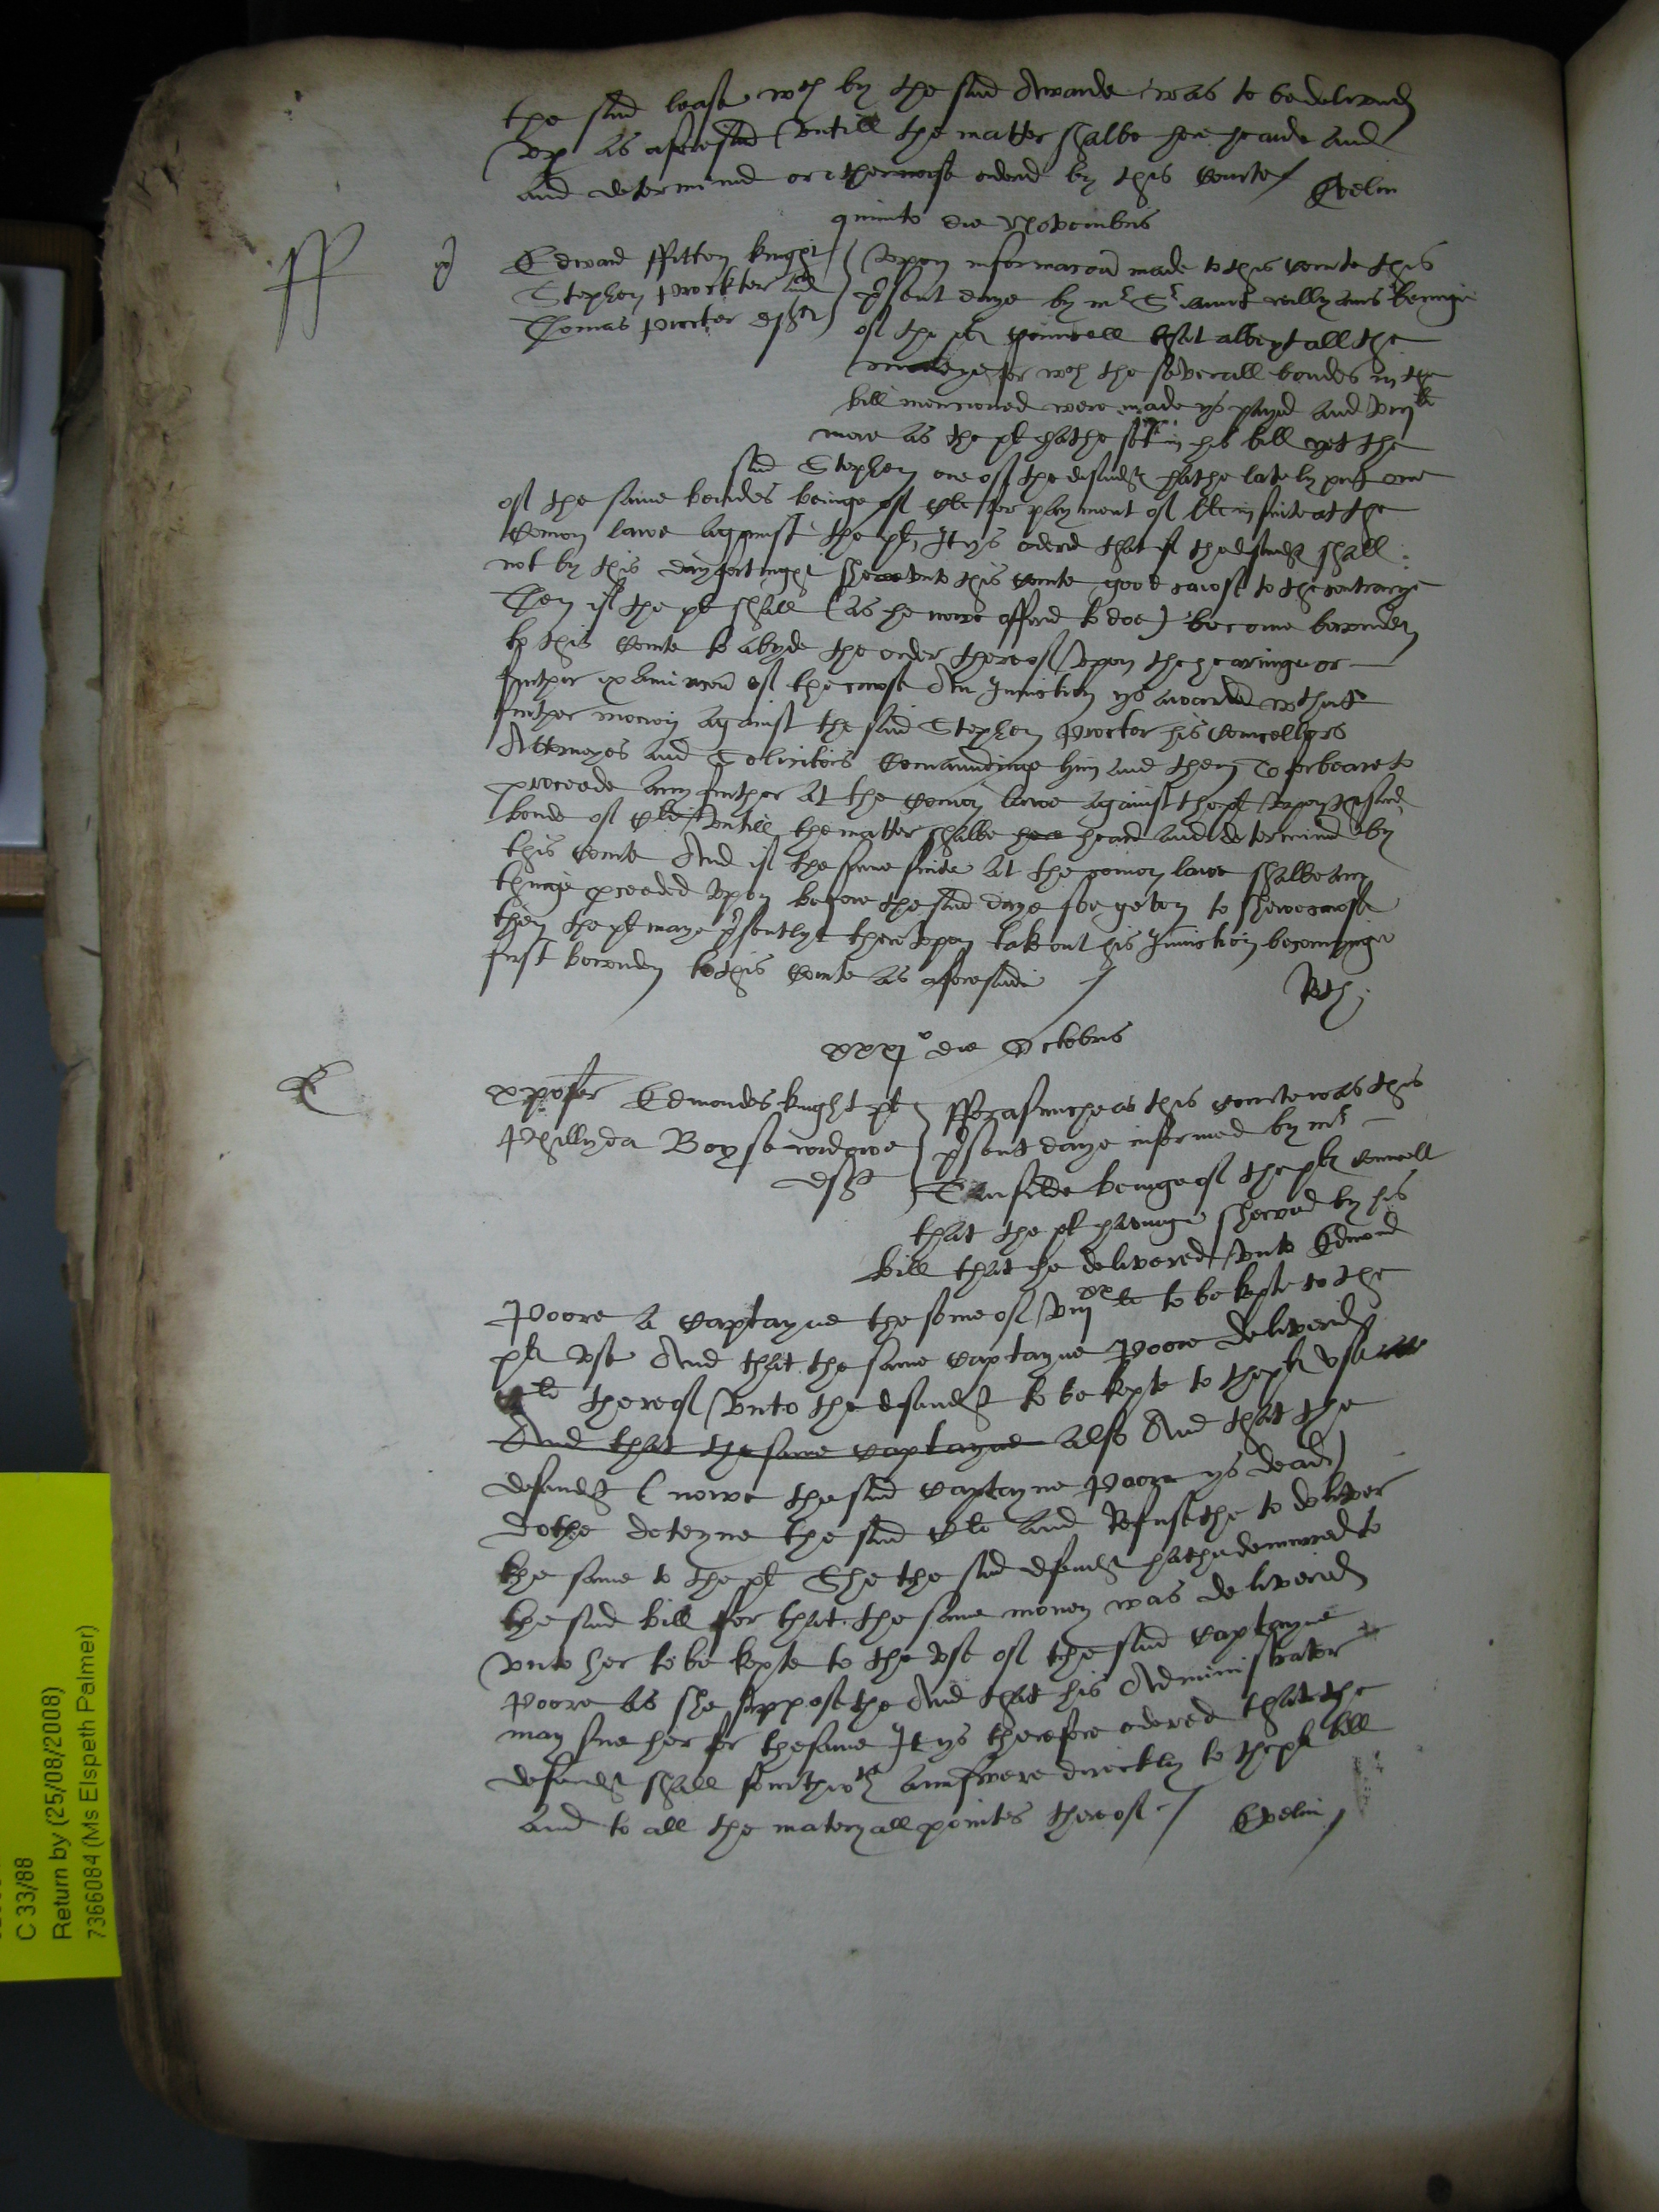 the said lease wch by the said Awarde was to be delivered
vp as aforesaid vntill the matter shalbe here hearde and
and determined or otherwise ordered by this Courte Evelin
quinto die Novembris
ff
Edward ffitton knight
Stephen Prockter and
Thomas Procter deftes
Vpon informacon made to this Courte this
p̱sent daye by mr Sṟiaunt willyams beinge
of the pl Councell that albeyt all the
moneye for wch the severall bondes in the
bill mencioned were made ys payed and viijli
more as the pl hathe set in his bill yet the
said Stephen one of the defendtes hathe lately put one
of the same bondes beinge of Cli for payment of lli in suite at the
Comon lawe against the pl, It ys ordered that if the defendtes shall
not by this day fortnight shewe vnto this Courte good cause to the contrarye
Then if the pl shall (as he nowe offered to doe) become bounden
to this Courte to abyde the order thereof vpon the hearinge or
further examinacon of the cause An Iniunction ys awarded without
further mocion against the said Stephen Procter his Councellors
Attorneyes and Solicitors Comaundinge him and them To forbeare to
proceede any further at the Comon lawe against the pl vpon the said
bonde of Cli vntill the matter shalbe here heard and determined by
this Courte And if the same suite at the comon lawe shalbe any
thinge p̱ceeded vpon before the said daye soe geven to shewe cause
then the pl maye p̱sently therevpon take out his Iniunction becominge
first bounden to this Courte as aforesaide
Rth
xxxjo die Octobris
E
xpofer Edmondes knight pl
Phillyda Boyse widowe
deft
fforasmuche as this Courte was this
p̱sent daye informed by mr
Tanfilde beinge of the pl Councell
that the pl havinge shewed by his
bill that he delivered vnto Edmond
Poore a Captayne the some of viijxx li to be kepte to the
pl vse And that the same Captayne Poore delivered
Cli thereof vnto the defendt to be kepte to the pl vse
And that the same Captayne also And that the
defendt (nowe the said Captayne Poore ys dead)
dothe deteyne the said Cli and Refusethe to deliver
the same to the pl She the said defendt hathe demurred to
the said bill for that the same money was delivered
vnto her to be kepte to the vse of the said Captayne
Poore as she supposethe And that his Administrator
may sue her for the same It ys therefore ordered that the
defendt shall fourthwth aunswere directly to the pl bill
and to all the materyall pointes thereof Evelin
C 33/88
Return by (25/08/2008)
7366084 (Ms Elspeth Palmer)